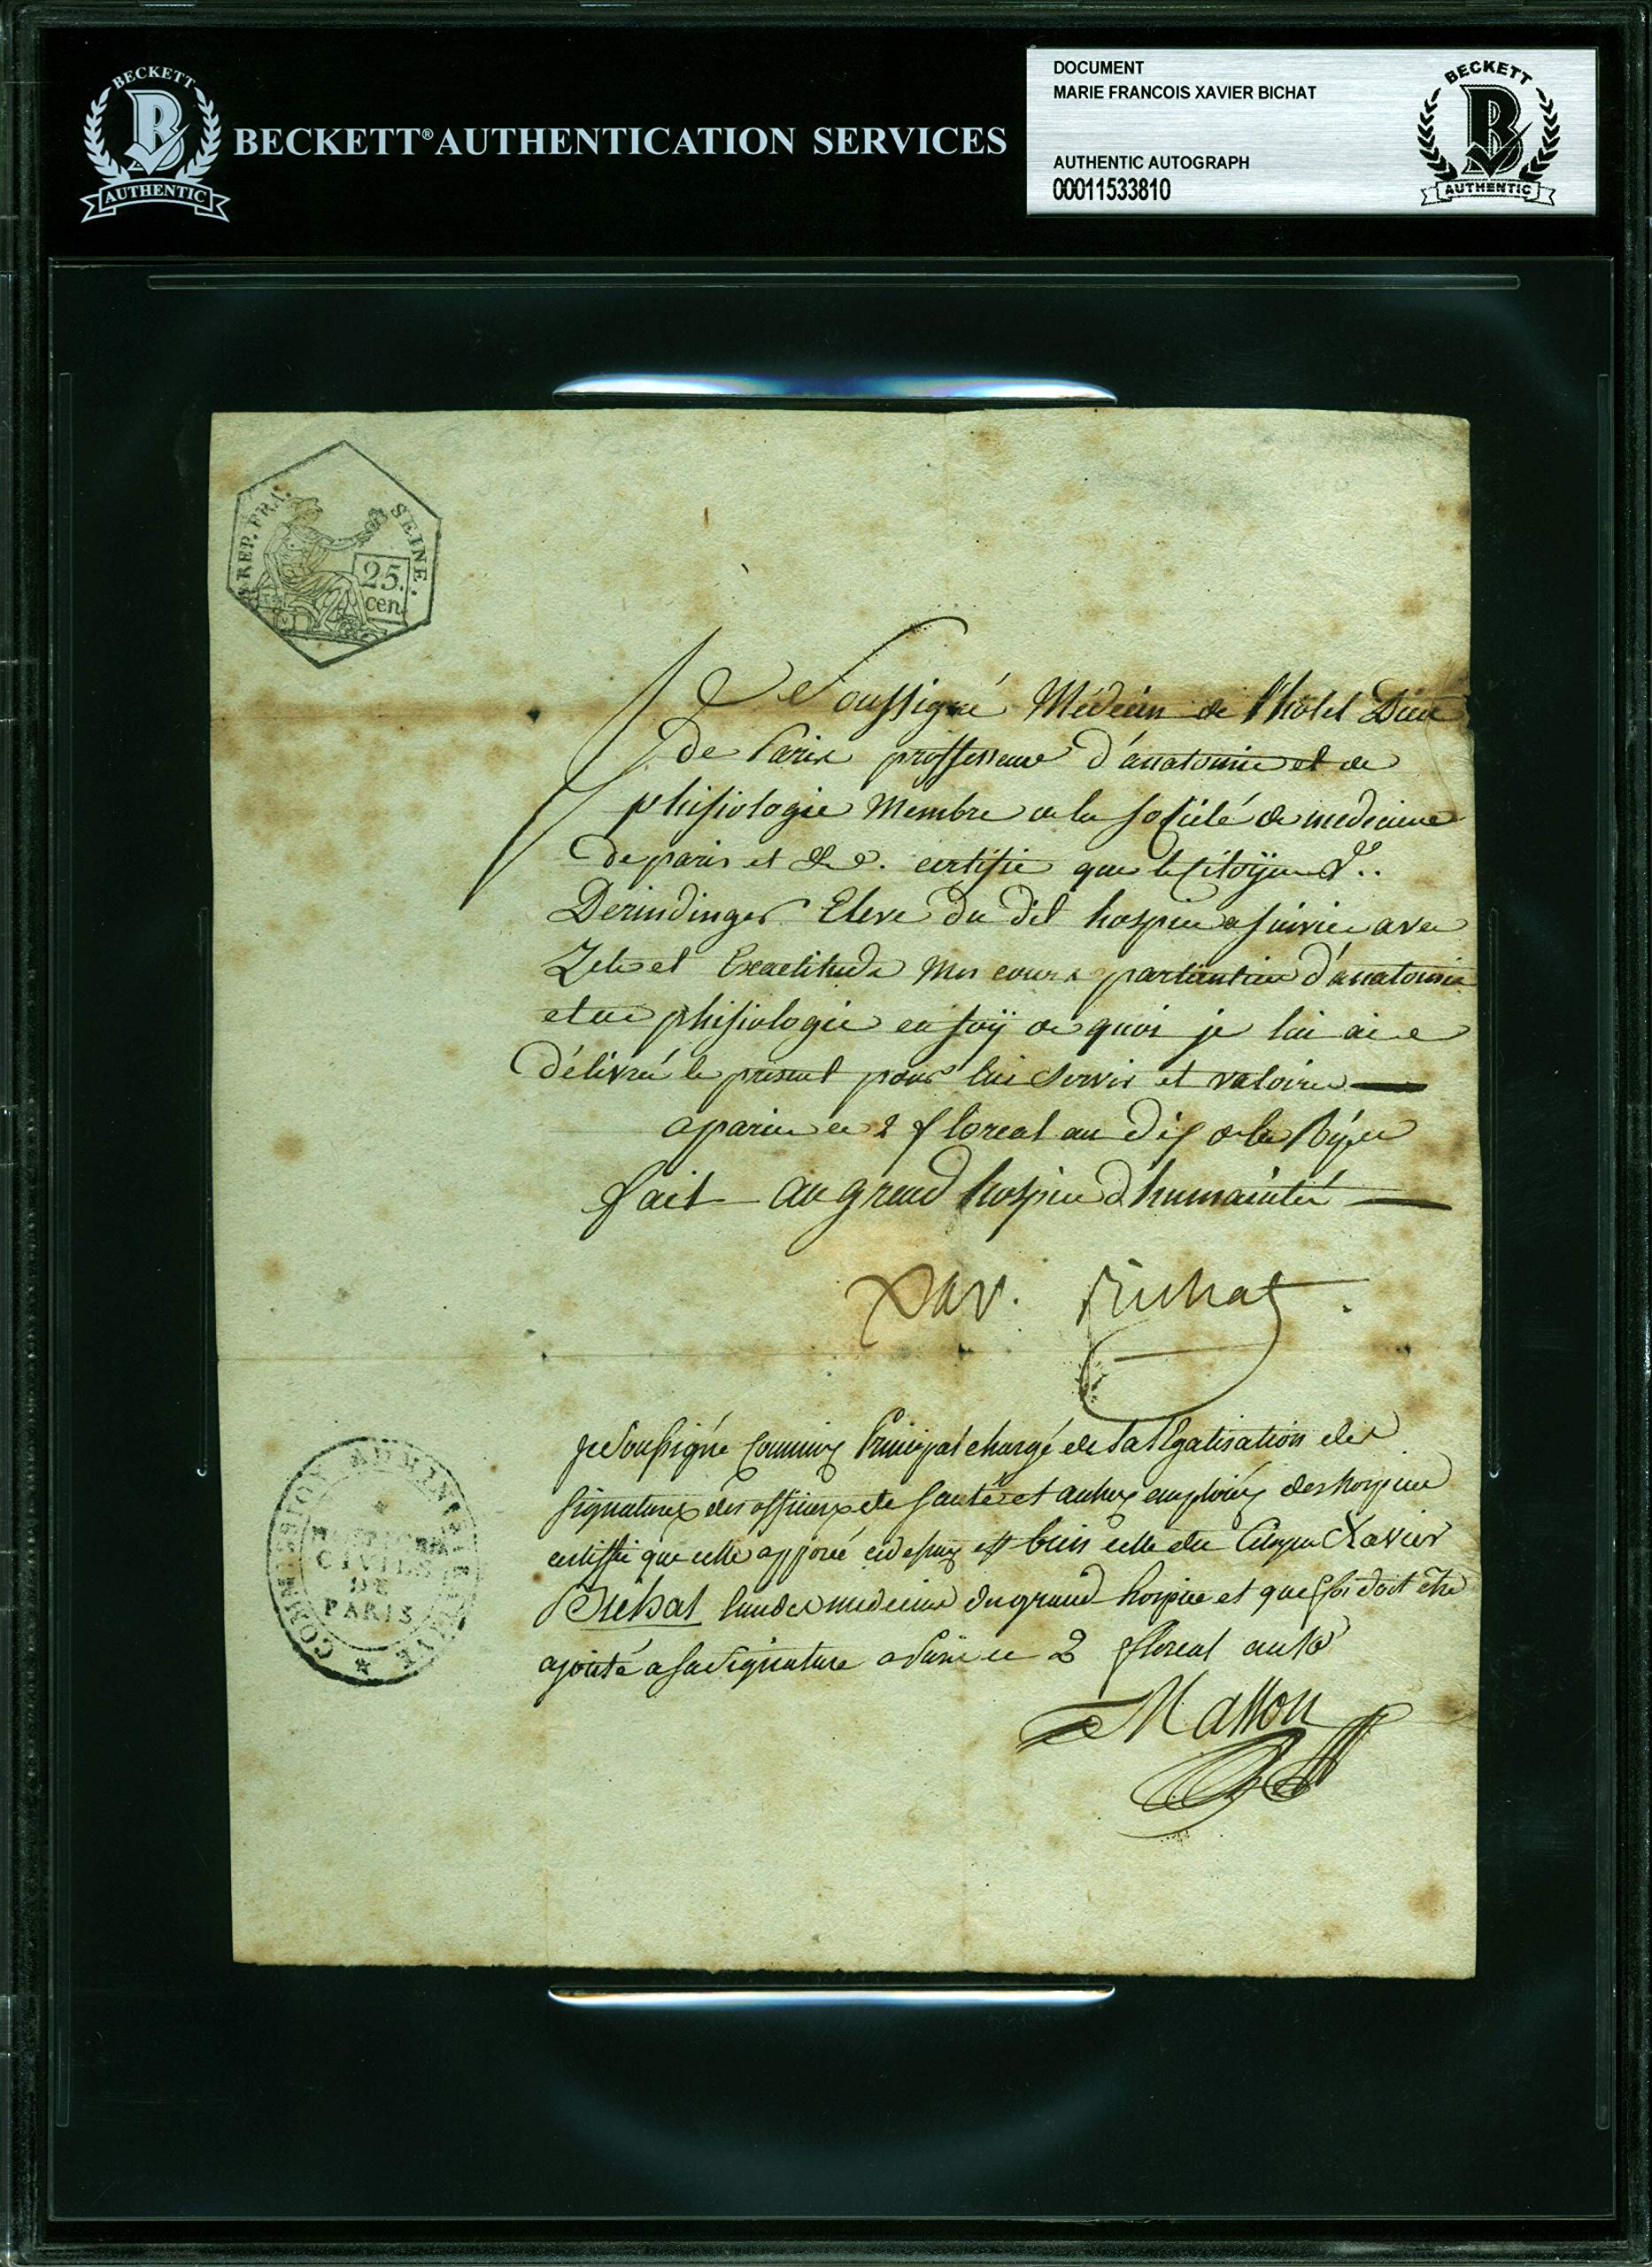 BECKETT
B
AUTHENTIC
BECKETT® AUTHENTICATION SERVICES
DOCUMENT
MARIE FRANCOIS XAVIER BICHAT
AUTHENTIC AUTOGRAPH
00011533810
BECKETT
B
AUTHENTIC
REP. FRA. SEINE.
25.
cen.
Je Soussigné Médecin de l'hotel Dieu
de Paris proffesseur d'anatomie et de
phisiologie Membre de la société de medecine
de paris et &c. certifie que le Citoÿen
Derindinger Eleve du dit hospice a suivie avec
Zele et Exactitude Mes cours particulier d'anatomie
et de phisiologie en foÿ de quoi je lui ai
délivré le present pour lui servir et valoire
a paris ce 2 floreal an dix de la Rép
fait au grand hospice d'humanité
Xav. Bichat.
Je Soussigné Commis Principal chargé de la légalisation des
signatures des officiers de santé et autres emploiés des hospices
certiffie que celle apposé ci dessus est bien celle du Citoyen Xavier
Bichat l'un des medecins du grand hospice et que foi doit etre
ajouté a sa signature a Paris ce 2 floreal an 10
Masson
COMMISSION ADMINISTRATIVE
HOSPICES
CIVILS
DE
PARIS